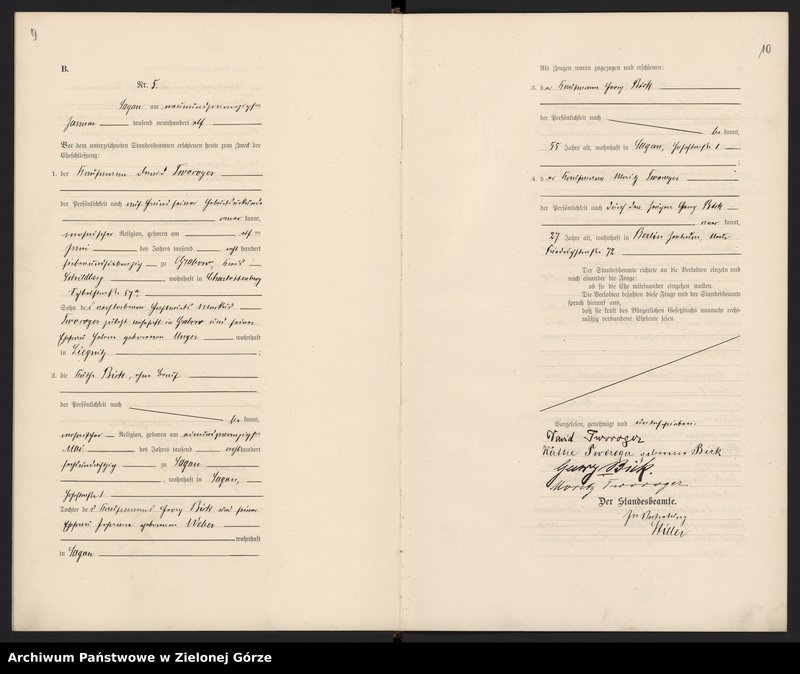 9
B.
Nr. 5.
Sagan am neunundzwanzigsten
Januar tausend neunhundert elf
Vor dem unterzeichneten Standesbeamten erschienen heute zum Zweck der
Eheschließung:
1. der Kaufmann David Tworoger
der Persönlichkeit nach auf Grund seiner Geburtsurkunde
kannt,
mosaischer Religion, geboren am elften
Juni des Jahres tausend acht hundert
siebenundsiebenzig zu Grabow, Kreis
Schildberg, wohnhaft in Charlottenburg
Sybelstraße
Sohn des verstorbenen Markus
Tworoger zuletzt wohnhaft in Grabow und seiner
Ehefrau geborenen Unger wohnhaft
in Liegnitz ;
2. die Käthe Bick, ohne Beruf
der Persönlichkeit nach
be kannt,
mosaischer Religion, geboren am einundzwanzigsten
Mai des Jahres tausend achthundert
sechsundachtzig zu Sagan
, wohnhaft in Sagan,
Tochter des Kaufmanns Georg Bick und seiner
Ehefrau Johanna geborenen Weber
wohnhaft
in Sagan
10
Als Zeugen waren zugezogen und erschienen:
3. der Kaufmann Georg Bick
der Persönlichkeit nach
be kannt,
55 Jahre alt, wohnhaft in Sagan, 1
;
4. der Kaufmann Moritz Tworoger
der Persönlichkeit nach durch den Zeugen Georg Bick
kannt,
27 Jahre alt, wohnhaft in Berlin
Friedrichstraße 72
Der Standesbeamte richtete an die Verlobten einzeln und
nach einander die Frage:
ob sie die Ehe miteinander eingehen wollen.
Die Verlobten bejahten diese Frage und der Standesbeamte
sprach hierauf aus,
daß sie kraft des Bürgerlichen Gesetzbuchs nunmehr recht-
mäßig verbundene Eheleute seien.
Vorgelesen, genehmigt und unterschrieben.
David Tworoger
Käthe Tworoger geborene Bick
Georg Bick.
Moritz Tworoger
Der Standesbeamte.
In Vertretung
Archiwum Państwowe w Zielonej Górze